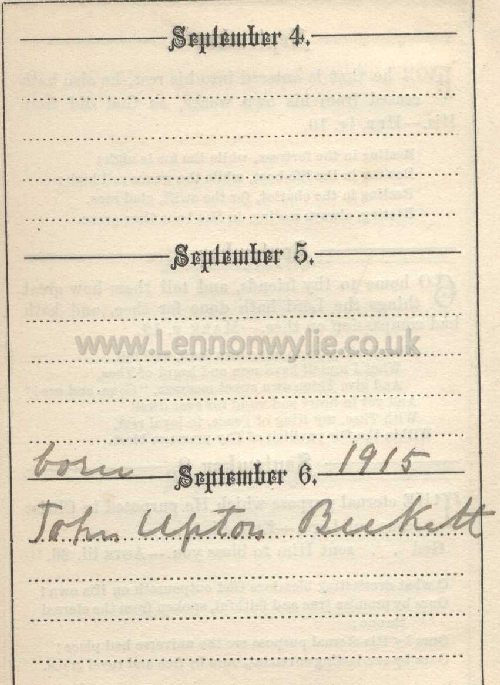 September 4.
September 5.
www.Lennonwylie.co.uk
born 1915
September 6.
John Upton Beckett